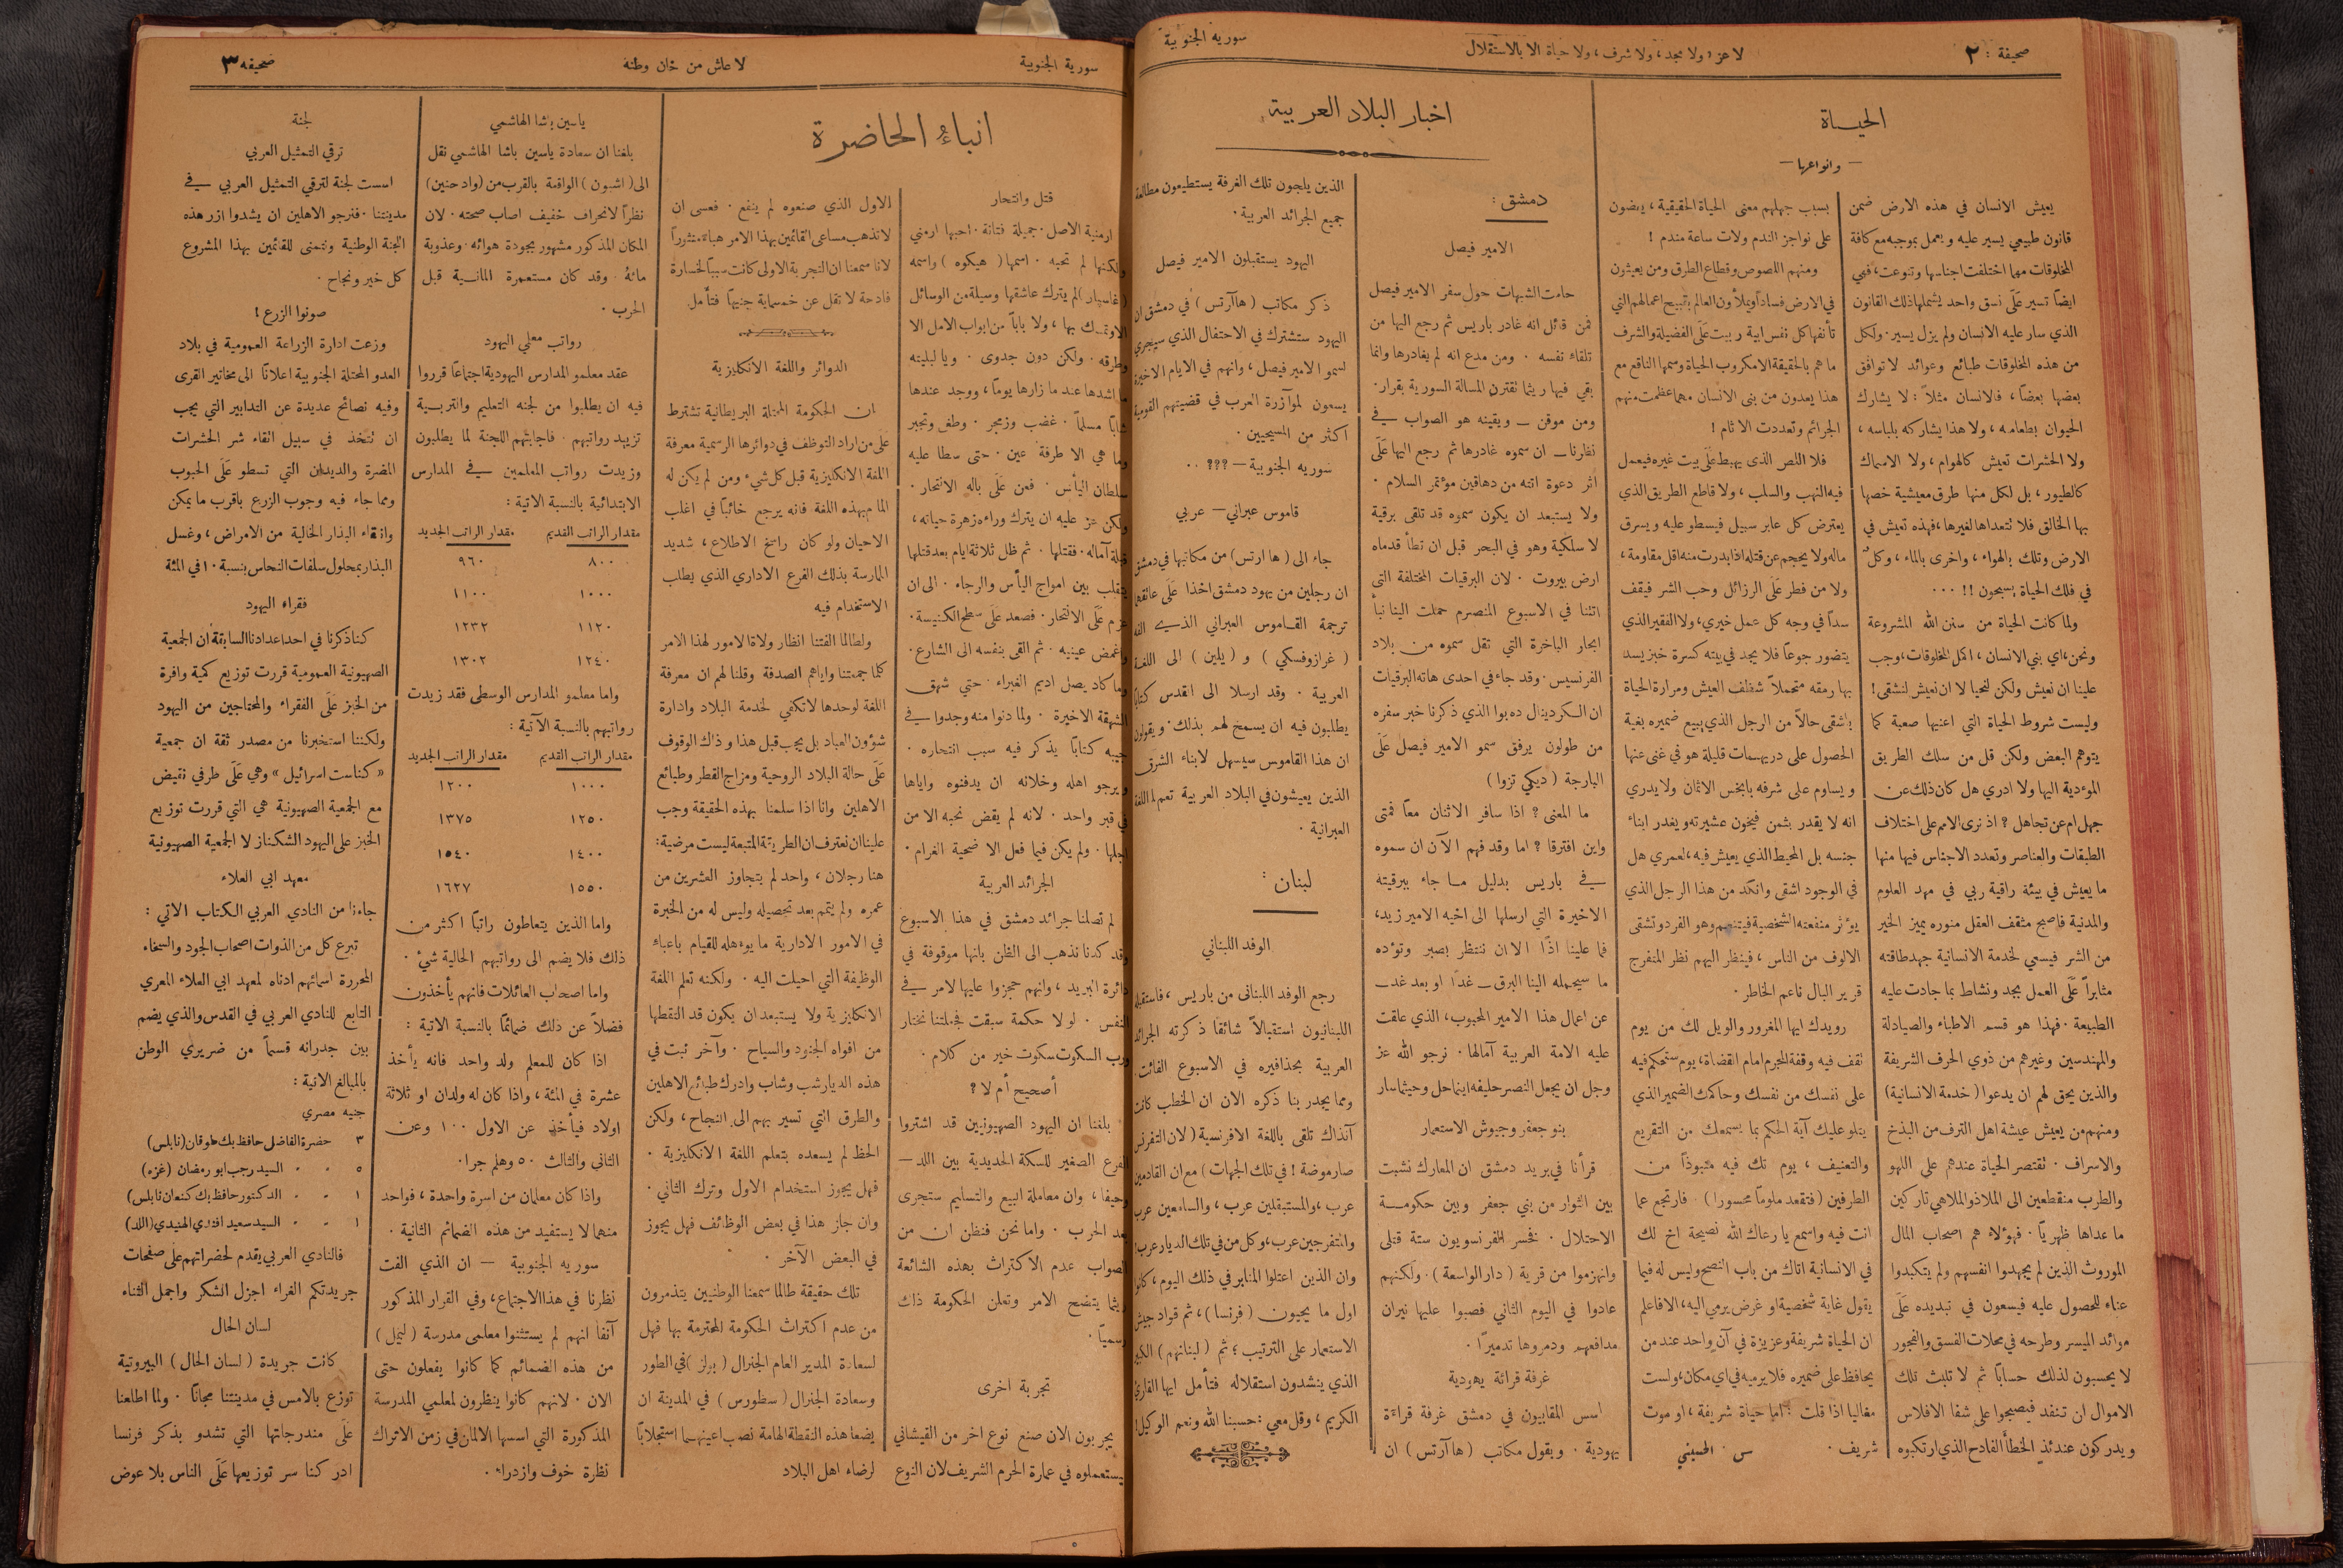 صحيفة : ٢
لا عز ، ولا مجد ، ولا شرف ، ولا حياة الا بالاستقلال
سورية الجنوبية
الحياة
— وانواعها —
يعيش الانسان في هذه الارض ضمن
قانون طبيعي يسير عليه ويعمل بموجبه مع كافة
المخلوقات مهما اختلفت اجناسها وتنوعت ، فهي
ايضاً تسير عَلَى نسق واحد يشملها ذلك القانون
الذي سار عليه الانسان ولم يزل يسير . ولكل
من هذه المخلوقات طبائع وعوائد لا توافق
بعضها بعضاً ، فالانسان مثلاً : لا يشارك
الحيوان بطعامه ، ولا هذا يشاركه بلباسه ،
ولا الحشرات تعيش كالهوام ، ولا الاسماك
كالطيور ، بل لكل منها طرق معيشية خصها
بها الخالق فلا تتعداها لغيرها ، فهذه تعيش في
الارض وتلك بالهواء ، واخرى بالماء ، وكل
في فلك الحياة يسبحون !! ...
ولما كانت الحياة من سنن الله المشروعة
ونحن ، اي بني الانسان ، اكمل المخلوقات ، وجب
علينا ان نعيش ولكن لنحيا لا ان نعيش لنشقى !
وليست شروط الحياة التي اعنيها صعبة كما
يتوهم البعض ولكن قل من سلك الطريق
الموءدية اليها ولا ادري هل كان ذلك عن
جهل ام عن تجاهل ؟ اذ نرى الامم على اختلاف
الطبقات والعناصر وتعدد الاجناس فيها منها
ما يعيش في بيئة راقية ربي في مهد العلوم
والمدنية فاصبح مثقف العقل منوره يميز الخير
من الشر فيسعى لخدمة الانسانية جهد طاقته
مثابراً عَلَى العمل بجد ونشاط بما جادت عليه
الطبيعة . فهذا هو قسم الاطباء والصيادلة
والمهندسين وغيرهم من ذوي الحرف الشريفة
والذين يحق لهم ان يدعوا ( خدمة الانسانية )
ومنهم من يعيش عيشة اهل الترف من البذخ
والاسراف . تقتصر الحياة عندهم على اللهو
والطرب منقطعين الى الملاذ والملاهي تاركين
ما عداها ظهرياً . فهؤلاء هم اصحاب المال
الموروث الذين لم يجهدوا انفسهم ولم يتكبدوا
عناء للحصول عليه فيسعون في تبديده عَلَى
موائد الميسر وطرحه في محلات الفسق والفجور
لا يحسبون لذلك حساباً ثم لا تلبث تلك
الاموال ان تنفد فيصبحوا على شفا الافلاس
ويدركون عندئذ الخطأ الفادح الذي ارتكبوه
بسبب جهلهم معنى الحياة الحقيقية ، يعضون
على نواجز الندم ولات ساعة مندم !
ومنهم اللصوص وقطاع الطرق ومن يعيثون
في الارض فساداً ويملأون العالم بقبيح اعمالهم التي
تأنفها كل نفس ابية ربيت عَلَى الفضيلة والشرف
ما هم بالحقيقة الا مكروب الحياة وسمها الناقع مع
هذا يعدون من بنى الانسان مهما عظمت منهم
الجرائم وتعددت الاثام !
فلا اللص الذى يهبط عَلَى بيت غيره فيعمل
فيه النهب والسلب ، ولا قاطع الطريق الذي
يعترض كل عابر سبيل فيسطو عليه ويسرق
ماله ولا يحجم عن قتله اذا بدرت منه اقل مقاومة ،
ولا من فطر عَلَى الرزائل وحب الشر فيقف
سداً في وجه كل عمل خيري ، ولا الفقير الذي
يتضور جوعاً فلا يجد في بيته كسرة خبز يسد
بها رمقه متحملاً شظف العيش ومرارة الحياة
باشقى حالاً من الرجل الذي يبيع ضميره بغية
الحصول على دريهمات قليلة هو في غنى عنها
ويساوم على شرفه بابخس الاثمان ولا يدري
انه لا يقدر بثمن فيخون عشيرته ويغدر ابناء
جنسه بل المحيط الذي يعيش فيه ، لعمري هل
في الوجود اشقى وانكد من هذا الرجل الذي
يؤثر منفعته الشخصية فيتنعم وهو الفرد وتشقى
الالوف من الناس ، فينظر اليهم نظر المتفرج
قرير البال ناعم الخاطر .
رويدك ايها المغرور والويل لك من يوم
تقف فيه وقفة المجرم امام القضاة ، يوم ستحكم فيه
على نفسك من نفسك وحاكمك الضمير الذي
يتلو عليك آية الحكم بما يسمعك من التقريع
والتعنيف ، يوم تك فيه منبوذاً من
الطرفين ( فتقعد ملوماً محسورا ) . فارتجع عما
انت فيه واسمع يا رعاك الله نصيحة اخ لك
في الانسانية اتاك من باب النصح وليس له فيما
يقول غاية شخصية او غرض يرمي اليه ، الا فاعلم
ان الحياة شريفة وعزيزة في آن واحد عند من
يحافظ على ضميره فلا يرميه في اي مكان ، ولست
مغاليا اذا قلت : اما حياة شريفة ، او موت
شريف .
س . الحسيني
اخبار البلاد العربية
دمشق :
الامير فيصل
حامت الشبهات حول سفر الامير فيصل
فمن قائل انه غادر باريس ثم رجع اليها من
تلقاء نفسه . ومن مدع انه لم يغادرها وانما
بقي فيها ريثما تقترن المسالة السورية بقرار .
ومن موقن — ويقينه هو الصواب في
نظرنا — ان سموه غادرها ثم رجع اليها عَلَى
اثر دعوة اتته من دهاقين مؤتمر السلام .
ولا يستبعد ان يكون سموه قد تلقى برقية
لا سلكية وهو في البحر قبل ان تطأ قدماه
ارض بيروت . لان البرقيات المختلفة التى
اتتنا في الاسبوع المنصرم حملت الينا نبأ
ابحار الباخرة التي تقل سموه من بلاد
الفرنسيس . وقد جاء في احدى هاته البرقيات
ان الكردينال ده بوا الذي ذكرنا خبر سفره
من طولون يرفق سمو الامير فيصل عَلَى
البارجة ( ديكي تزوا )
ما المعنى ؟ اذا سافر الاثنان معاً فمتى
واين افترقا ؟ اما وقد فهم الآن ان سموه
في باريس بدليل ما جاء ببرقيته
الاخيرة التي ارسلها الى اخيه الامير زيد ،
فما علينا اذًا الا ان ننتظر بصبر وتؤده
ما سيحمله الينا البرق — غداً او بعد غد —
عن اعمال هذا الامير المحبوب ، الذي علقت
عليه الامة العربية آمالها . نرجو الله عز
وجل ان يجعل النصر حليفه اينما حل وحيثما سار
بنو جعفر وجيوش الاستعمار
قرأنا في بريد دمشق ان المعارك نشبت
بين الثوار من بني جعفر وبين حكومة
الاحتلال . فخسر الفرنسويون ستة قتلى
وانهزموا من قرية ( دار الواسعة ) . ولكنهم
عادوا في اليوم الثاني فصبوا عليها نيران
مدافعهم ودمروها تدميراً .
غرفة قرائة يهودية
اسس المقابيون في دمشق غرفة قراءة
يهودية . ويقول مكاتب ( ها آرتس ) ان
الذين يلجون تلك الغرفة يستطيعون مطالعة
جميع الجرائد العربية .
اليهود يستقبلون الامير فيصل
ذكر مكاتب ( ها آرتس ) في دمشق ان
اليهود ستشترك في الاحتفال الذي سيجري
لسمو الامير فيصل ، وانهم في الايام الاخيرة
يسعون لموآزرة العرب في قضيتهم القومية
اكثر من المسيحيين .
سوريه الجنوبية — ؟؟؟ ..
قاموس عبراني — عربي
جاء الى ( ها ارتس ) من مكاتبها في دمشق
ان رجلين من يهود دمشق اخذا عَلَى عاتقهما
ترجمة القاموس العبراني الذي الفه
( غرازوفسكي ) و ( يلين ) الى اللغة
العربية . وقد ارسلا الى القدس كتابا
يطلبون فيه ان يسمح لهم بذلك . ويقولون
ان هذا القاموس سيسهل لابناء الشرق
الذين يعيشون في البلاد العربية تعلم اللغة
العبرانية .
لبنان :
الوفد اللبناني
رجع الوفد اللبناني من باريس ، فاستقبله
اللبنانيون استقبالاً شائقا ذكرته الجرائد
العربية بحذافيره في الاسبوع الفائت .
ومما يجدر بنا ذكره الان ان الخطب كانت
آنذاك تلقى باللغة الافرنسية ( لان التفرنس
صار موضة ! في تلك الجهات ) مع ان القادمين
عرب ، والمستقبلين عرب ، والسامعين عرب
والمتفرجين عرب ، وكل من في تلك الديار عرب !
وان الذين اعتلوا المنابر في ذلك اليوم ، كانوا
اول ما يحيون ( فرنسا ) ، ثم قواد جيش
الاستعمار على الترتيب ؛ ثم ( لبنانهم ) الكبير
الذي ينشدون استقلاله فتأمل ايها القارئ
الكريم ، وقل معي : حسبنا الله ونعم الوكيل !
سورية الجنوبية
لا عاش من خان وطنه
صحيفه ٣
انباء الحاضرة
قتل وانتحار
ارمنية الاصل . جميلة فتانة . احبها ارمني
ولكنها لم تحبه . اسمها ( هيكوه ) واسمه
( غاسپار ) لم يترك عاشقها وسيلة من الوسائل
الا وتمسك بها ، ولا باباً من ابواب الامل الا
وطرقه . ولكن دون جدوى . ويا لبليته
ما اشدها عند ما زارها يوماً ، ووجد عندها
شاباً مسلماً . غضب وزمجر . وطغى وتجبر
وما هي الا طرفة عين . حتى سطا عليه
سلطان اليأس . فعن عَلَى باله الانتحار .
ولكن عز عليه ان يترك وراءه زهرة حياته ،
قبلة آماله . فقتلها . ثم ظل ثلاثة ايام بعد قتلها
يتقلب بين امواج اليأس والرجاء . الى ان
عزم عَلَى الانتحار . فصعد عَلَى سطح الكنيسة .
واغمض عينيه . ثم القى بنفسه الى الشارع .
وما كاد يصل اديم الغبراء . حتي شهق
الشهقة الاخيرة . ولما دنوا منه وجدوا في
جيبه كتاباً يذكر فيه سبب انتحاره .
ويرجو اهله وخلانه ان يدفنوه واياها
في قبر واحد . لانه لم يقض نحبه الا من
اجلها . ولم يكن فيما فعل الا ضحية الغرام .
الجرائد العربية
لم تصلنا جرائد دمشق في هذا الاسبوع
وقد كدنا نذهب الى الظن بانها موقوفة في
دائرة البريد ، وانهم حجزوا عليها لامر في
النفس . لولا حكمة سبقت فجعلتنا نختار
ورب السكوت سكوت خير من كلام .
أصحيح أم لا ؟
بلغنا ان اليهود الصهيونيين قد اشتروا
الفرع الصغير للسكة الحديدية بين اللد —
وحيفا ، وان معاملة البيع والتسليم ستجرى
بعد الحرب . واما نحن فنظن ان من
الصواب عدم الاكتراث بهذه الشائعة
ريثما يتضح الامر وتعلن الحكومة ذاك
رسمياً .
تجربة اخرى
يجربون الان صنع نوع اخر من القيشاني
يستعملوه في عمارة الحرم الشريف لان النوع
الاول الذي صنعوه لم ينفع . فعسى ان
لا تذهب مساعى القائمين بهذا الامر هباءً منثوراً
لانا سمعنا ان التجربة الاولى كانت سبباً لخسارة
فادحة لا تقل عن خمسماية جنيهاً فتأمل .
الدوائر واللغة الانكليزية
ان الحكومة المحتلة البريطانية تشترط
على من اراد التوظف في دوائرها الرسمية معرفة
اللغة الانكليزية قبل كل شيء ومن لم يكن له
المام بهذه اللغة فانه يرجع خائباً في اغلب
الاحيان ولو كان راسخ الاطلاع ، شديد
الممارسة بذلك الفرع الاداري الذي يطلب
الاستخدام فيه
ولطالما الفتنا انظار ولاة الامور لهذا الامر
كلما جمعتنا واياهم الصدفة وقلنا لهم ان معرفة
اللغة لوحدها لا تكفي لخدمة البلاد وادارة
شؤون العباد بل يجب قبل هذا وذاك الوقوف
عَلَى حالة البلاد الروحية ومزاج القطر وطبائع
الاهلين وانا اذا سلمنا بهذه الحقيقة وجب
علينا ان نعترف ان الطريقة المتبعة ليست مرضية :
هنا رجلان ، واحد لم يتجاوز العشرين من
عمره ولم يتمم بعد تحصيله وليس له من الخبرة
في الامور الادارية ما يوءهله للقيام باعباء
الوظيفة التي احيلت اليه . ولكنه تعلم اللغة
الانكليزية ولا يستبعد ان يكون قد التقطها
من افواه الجنود والسياح . وآخر نبت في
هذه الديار شب وشاب وادرك طبائع الاهلين
والطرق التي تسير بهم الى النجاح ، ولكن
الحظ لم يسعده بتعلم اللغة الانكليزية .
فهل يجوز استخدام الاول وترك الثاني .
وان جاز هذا في بعض الوظائف فهل يجوز
في البعض الآخر .
تلك حقيقة طالما سمعنا الوطنيين يتذمرون
من عدم اكتراث الحكومة المحترمة بها فهل
لسعادة المدير العام الجنرال ( بولز ) في الطور
وسعادة الجنرال ( سطورس ) في المدينة ان
يضعا هذه النقطة الهامة نصب اعينهما استجلاباً
لرضاء اهل البلاد
ياسين باشا الهاشمي
بلغنا ان سعادة ياسين باشا الهاشمي نقل
الى ( اشبون ) الواقعة بالقرب من ( واد حنين )
نظراً لانحراف خفيف اصاب صحته . لان
المكان المذكور مشهور بجودة هوائه . وعذوبة
مائهُ . وقد كان مستعمرة المانية قبل
الحرب .
رواتب معلمي اليهود
عقد معلمو المدارس اليهودية اجتماعاً قرروا
فيه ان يطلبوا من لجنه التعليم والتربية
تزييد رواتبهم . فاجابتهم اللجنة لما يطلبون
وزيدت رواتب المعلمين في المدارس
الابتدائية بالنسبة الاتية :
مقدار الراتب القديم مقدار الراتب الجديد
٨٠٠ ٩٦٠
١٠٠٠ ١١٠٠
١١٢٠ ١٢٣٢
١٢٤٠ ١٣٠٢
واما معلمو المدارس الوسطى فقد زيدت
رواتبهم بالنسبة الآتية :
مقدار الراتب القديم مقدار الراتب الجديد
١٠٠٠ ١٢٠٠
١٢٥٠ ١٣٧٥
١٤٠٠ ١٥٤٠
١٥٥٠ ١٦٢٧
واما الذين يتعاطون راتباً اكثر من
ذلك فلا يضم الى رواتبهم الحالية شئ .
واما اصحاب العائلات فانهم يأخذون
فضلاً عن ذلك ضمائما بالنسبة الاتية :
اذا كان للمعلم ولد واحد فانه يأخذ
عشرة في المئة ، واذا كان له ولدان او ثلاثة
اولاد فيأخذ عن الاول ١٠٠ وعن
الثاني والثالث ٥٠ وهلم جرا .
واذا كان معلمان من اسرة واحدة ، فواحد
منهما لا يستفيد من هذه الضمائم الثانية .
سوريه الجنوبية — ان الذي الفت
نظرنا في هذا الاجتماع ، وفي القرار المذكور
آنفا انهم لم يستثنوا معلمى مدرسة ( ليمل )
من هذه الضمائم كما كانوا يفعلون حتى
الان . لانهم كانوا ينظرون لمعلمي المدرسة
المذكورة التي اسسها الالمان في زمن الاتراك
نظرة خوف وازدراء .
لجنة
ترقي التمثيل العربي
اسست لجنة لترقي التمثيل العربي في
مدينتنا . فنرجو الاهلين ان يشدوا ازر هذه
اللجنة الوطنية ونتمنى للقائمين بهذا المشروع
كل خير ونجاح .
صونوا الزرع !
وزعت ادارة الزراعة العمومية في بلاد
العدو المحتلة الجنوبية اعلاناً الى مخاتير القرى
وفيه نصائح عديدة عن التدابير التي يجب
ان تتخذ في سبيل اتقاء شر الحشرات
المضرة والديدان التي تسطو عَلَى الحبوب
ومما جاء فيه وجوب الزرع باقرب ما يمكن
وانتقاء البذار الخالية من الامراض ، وغسل
البذار بمحلول سلفات النحاس بنسبة ١٠ في المئة
فقراء اليهود
كنا ذكرنا في احد اعدادنا السابقة ان الجمعية
الصهيونية العمومية قررت توزيع كمية وافرة
من الخبز عَلَى الفقراء والمحتاجين من اليهود
ولكننا استخبرنا من مصدر ثقة ان جمعية
« كناست اسرائيل » وهي عَلَى طرفي نقيض
مع الجمعية الصهيونية هي التي قررت توزيع
الخبز على اليهود الشكناز لا الجمعية الصهيونية
معهد ابي العلاء
جاءنا من النادي العربي الكتاب الاتي :
تبرع كل من الذوات اصحاب الجود والسخاء
المحررة اسمائهم ادناه لمعهد ابي العلاء المعري
التابع للنادي العربي في القدس والذي يضم
بين جدرانه قسماً من ضريري الوطن
بالمبالغ الاتية :
جنيه مصري
٣ حضرة الفاضل حافظ بك طوقان ( نابلس )
٥ » » السيد رجب ابو رمضان ( غزه )
١ » » الدكتور حافظ بك كنعان نابلس )
١ » » السيد سعيد افندي الهنيدي ( اللد )
فالنادي العربي يقدم لحضراتهم على صفحات
جريدتكم الغراء اجزل الشكر واجمل الثناء
لسان الحال
كانت جريدة ( لسان الحال ) البيروتية
توزع بالامس في مدينتنا مجاناً . ولما اطلعنا
عَلَى مندرجاتها التي تشدو بذكر فرنسا
ادركنا سر توزيعها عَلَى الناس بلا عوض